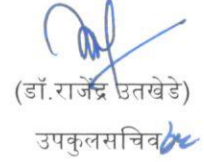 (डॉ.राजेंद्र उतखेडे)
उपकुलसचिव